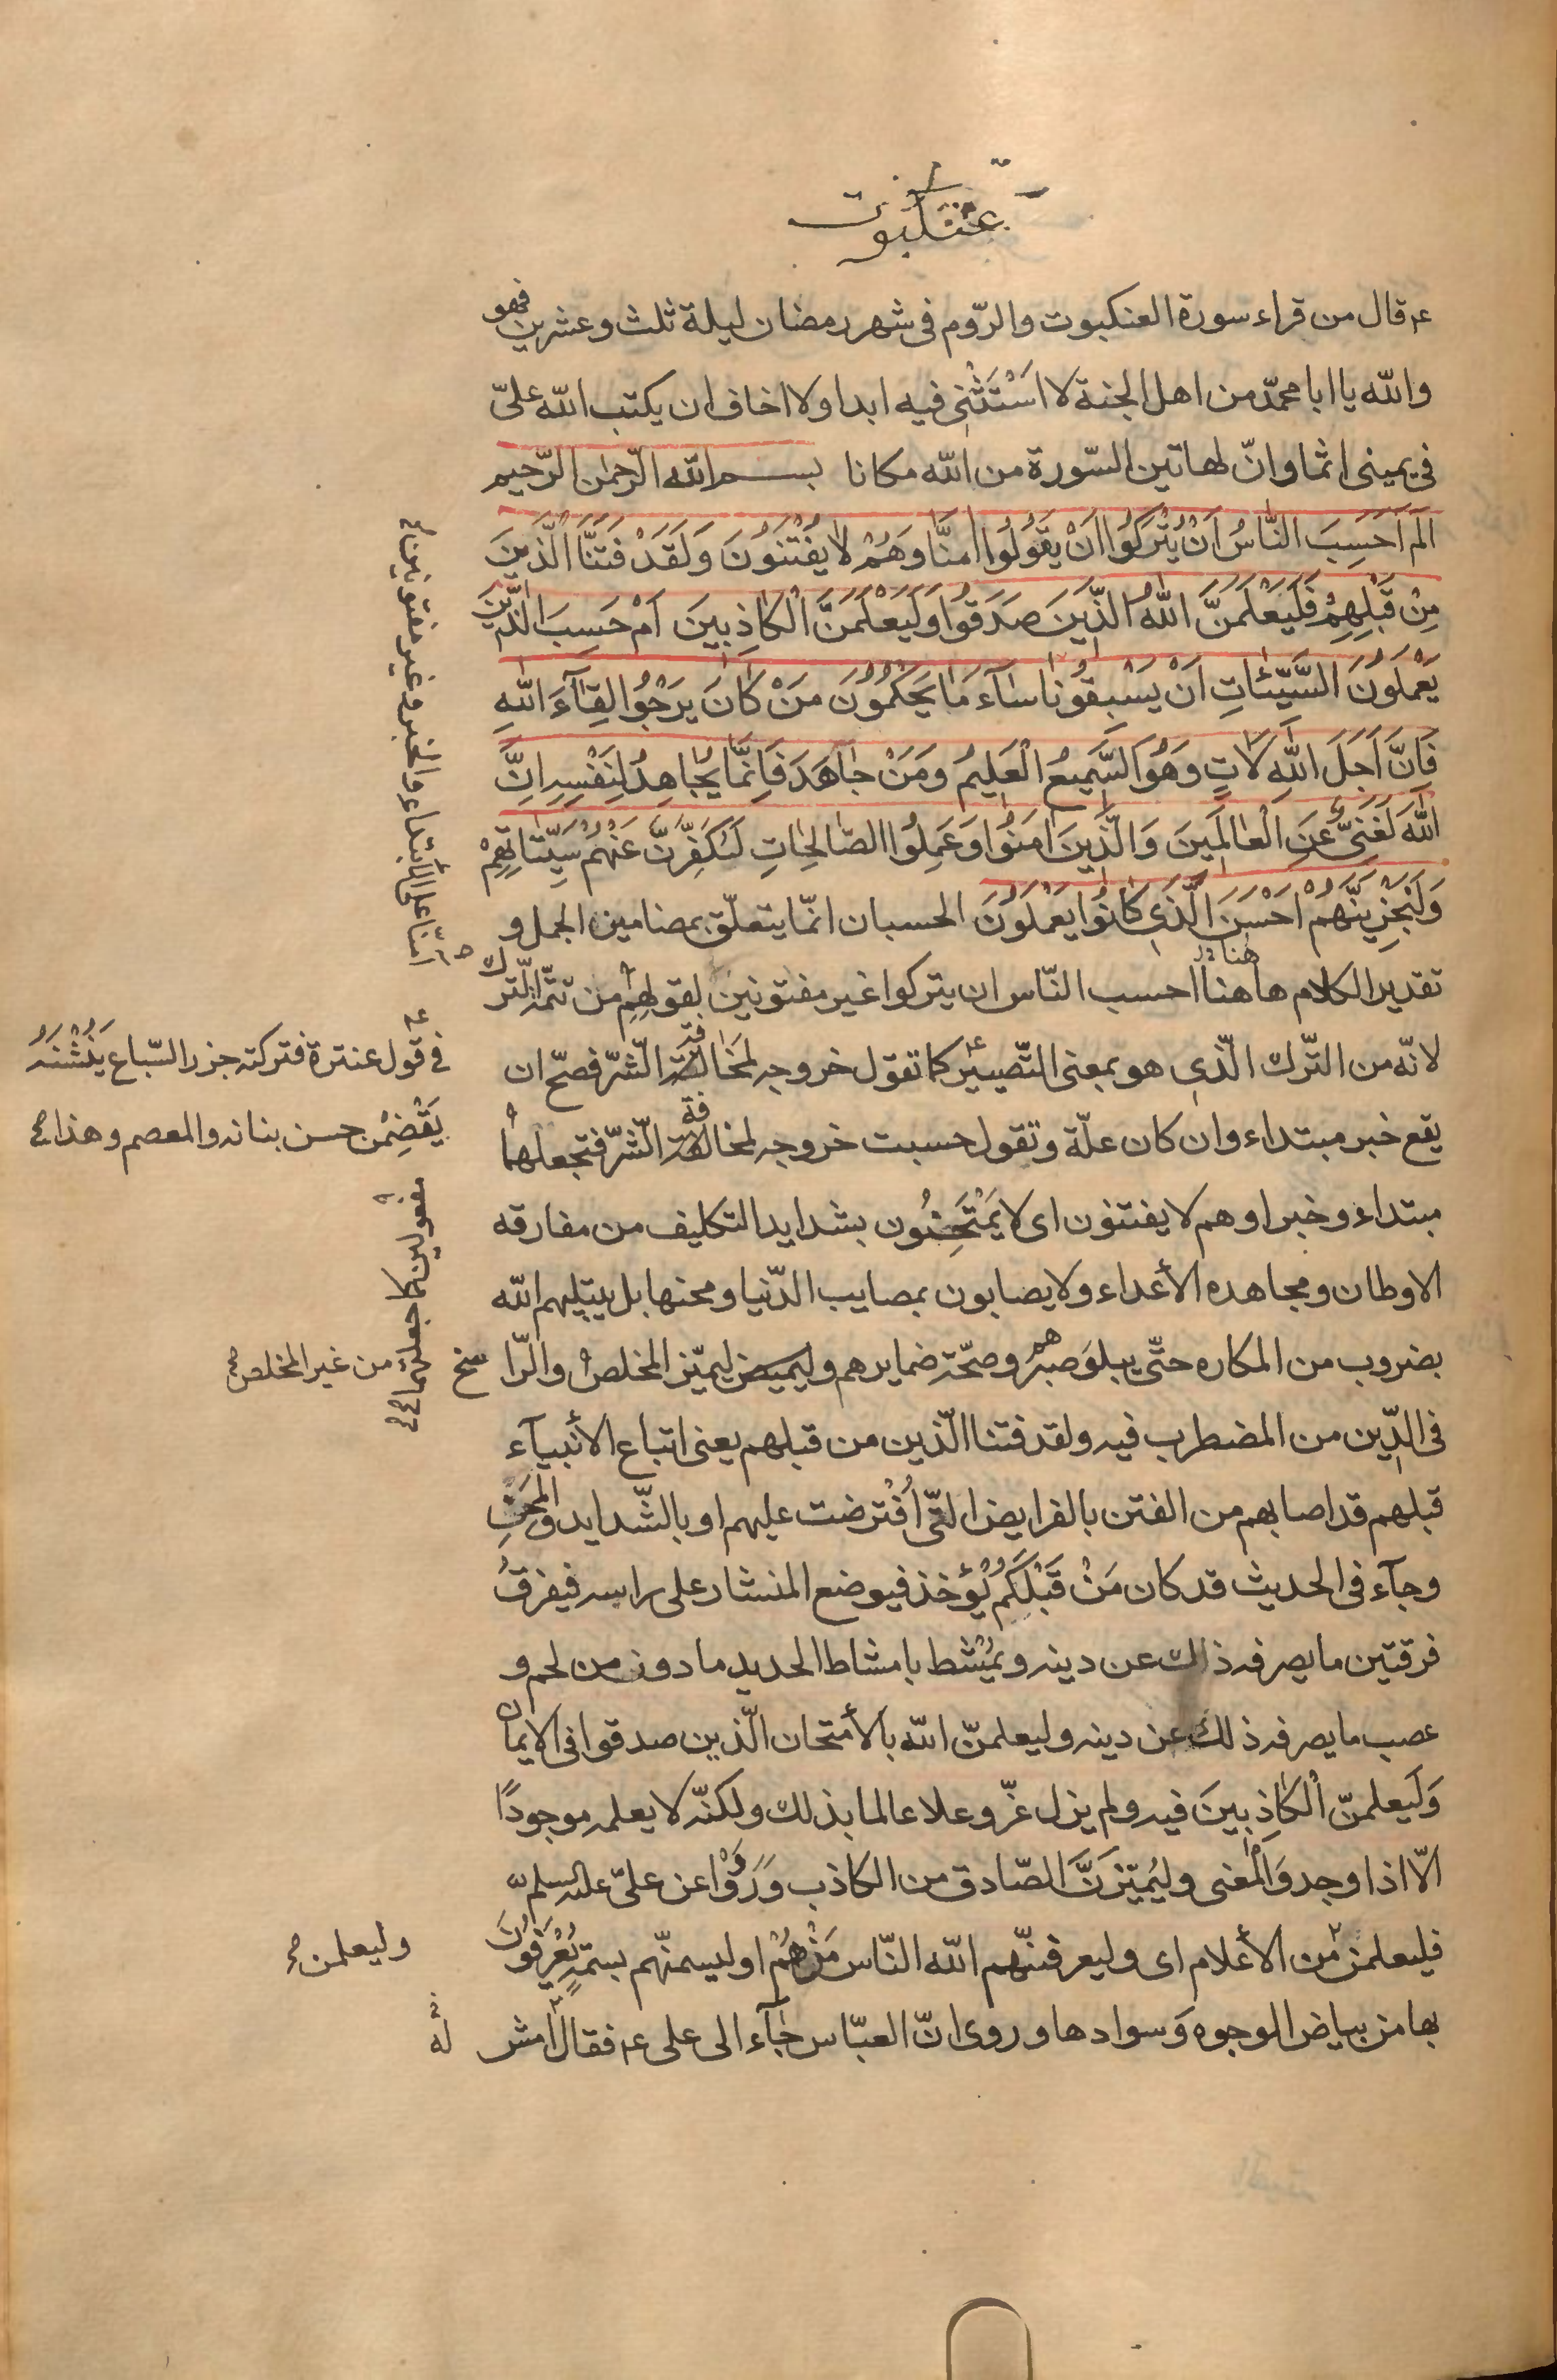 عنكبوت
ع قال من قراء سورة العنكبوت والرّوم فى شهر رمضان ليلة ثلث وعشرين فهو
والله يا ابا محمّد من اهل الجنة لا اَسْتَثْنى فيه ابدا ولا اخاف ان يكتب الله علىّ
فى يمينى اثما وانّ لهاتين السّورة من الله مكانا بسم الله الرّحمن الرّحيم
الم اَحَسِبَ النَّاسُ اَنْ يُتْرَكُوا اَنْ يَقُولُوا امَنَّا وَهُمْ لا يُفْتَنُونَ وَلَقَدْ فَتَنَّا الَّذينَ
مِنْ قَبْلِهِمْ فَلَيَعْلَمَنَّ اللهُ الَّذينَ صَدَقُوا وَلَيَعْلَمَنَّ الْكاذِبينَ اَمْ حَسِبَ الَّذينَ
يَعْمَلُونَ السَّيِّئاتِ اَنْ يَسْبِقُونا سآءَ مَا يَحْكُمُونَ مَنْ كانَ يَرْجُوا لِقآءَ اللهِ
فَاِنَّ اَجَلَ اللهِ لَاتٍ وَهُوَ السَّميعُ الْعَليمُ وَمَنْ جاهَدَ فَاِنَّما يُجاهِدُ لِنَفْسِهِ اِنَّ
اللهَ لَغَنِىٌّ عَنِ الْعالَمينَ وَالَّذينَ امَنُوا وَعَمِلُوا الصّالِحاتِ لَنُكَفِّرَنَّ عَنْهُمْ سَيِّئاتِهِمْ
وَلَنَجْزِيَنَّهُمْ اَحْسَنَ الَّذى كانُوا يَعْمَلُونَ الحسبان انمّا يتعلّق بمضامين الجمل و
تقدير الكلام هاهنا احسب النّاس ان يتركوا غير مفتونين لقولهم من تتمّة التّرك
امنّا على الابتداء والخبر وغير مفتونين
لانّه من التّرك الّذى هو بمعنى التّصيير كما تقول خروجه لمخافة الشّرّ فصحّ ان
فى قول عنترة فتركته جزر السّباع يَنُشْنَهُ
يَقْضِمْن حسن بنانه والمعصم وهذا
يقع خبر مبتداء وان كان علّة وتقول حسبت خروجه لمخافة الشّرّ فتجعلهما
مفعولين كما جعلتهما
مبتداء وخبرا وهم لا يفتنون اى لا يُمْتَحِنُون بشدايد التكليف من مفارقه
الاوطان ومجاهده الأعداء ولا يصابون بمصايب الدّنيا ومحنها بل يبتليهم الله
بضروب من المكاره حتّى يبلوَ صبرهم وصحّة ضمايرهم وليميّز المخلص والرّاسخ
من غير المخلص
فى الدّين من المضطرب فيه ولقد فتنا الّذين من قبلهم يعنى اتباع الأنبيآء
قبلهم قد اصابهم من الفتن بالفرايض الّتى اُفْتُرضت عليهم او بالشّدايد والمِحَنِ
وجآء فى الحديث قد كان مَنْ قَبْلَكُمْ يُؤْخذ فيوضع المنشار على راسه فيفرقُ
فرقتين ما يصرفه ذلك عن دينه ويُمْشط بامشاط الحديد ما دون من لحم و
عصب ما يصرفه ذلك عن دينه وليعلمنّ الله بالأمتحان الّذين صدقوا فى الايمان
وَلَيعلمنّ الْكاذِبينَ فيه ولم يزل عزّ وعلا عالما بذلك ولكنّه لا يعلمه موجودًا
الّا اذا وجد وَالْمعنى وليُميّزَنَّ الصّادق من الكاذب وَرَوَوْا عن علىّ عليه السلم
فليعلمن من الأعلام اى وليعرفنّهم الله النّاس مَنْ هُمْ او ليسمنّهم بسمة يُعْرَفُونَ
وليعلمن
بها من بياض الوجوه وَسوادها وروى انّ العبّاس جآء الى على ع فقال امش